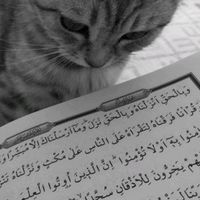 وَبِالْحَقِّ أَنزَلْنَٰهُ وَبِالْحَقِّ نَزَلَ وَمَا أَرْسَلْنَٰكَ إِلَّا مُبَشِّرًا
فَرَقْنَٰهُ لِتَقْرَأَهُ عَلَى النَّاسِ عَلَىٰ مُكْثٍ وَنَزَّلْنَٰهُ
بِهِ أَوْ لَا تُؤْمِنُوا إِنَّ الَّذِينَ أُوتُوا الْعِلْمَ
يَخِرُّونَ لِلْأَذْقَانِ سُجَّدًا